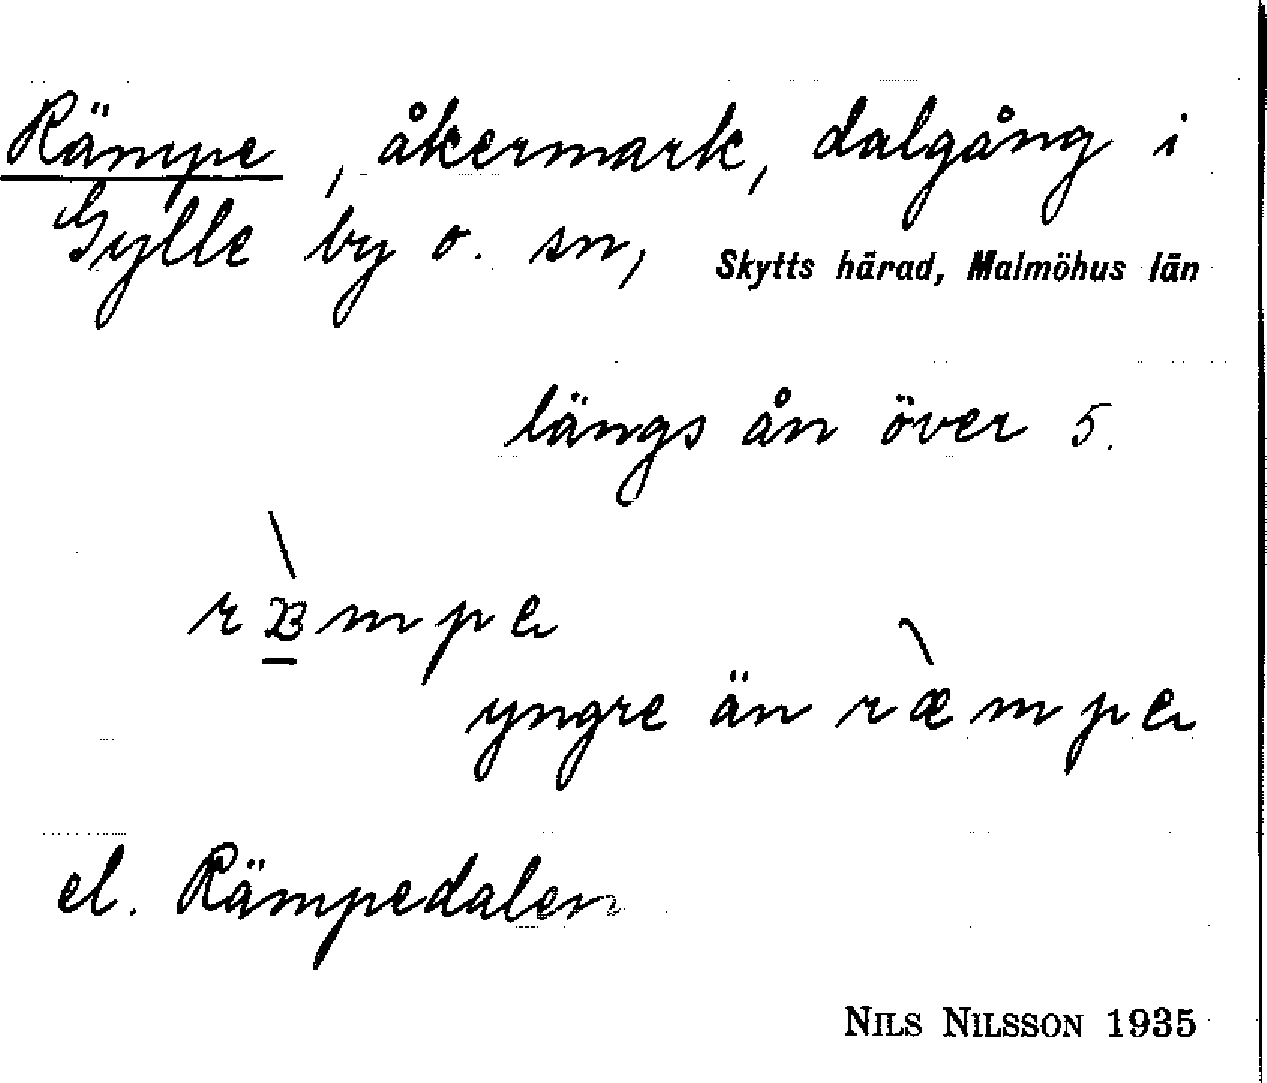 Rämpe, åkermark, dalgång i
Gylle by o. sn, Skytts härad, Malmöhus län
längs ån över 5.
yngre än ræ̀mpe
el. Rämpedalen
NILS NILSSON 1935